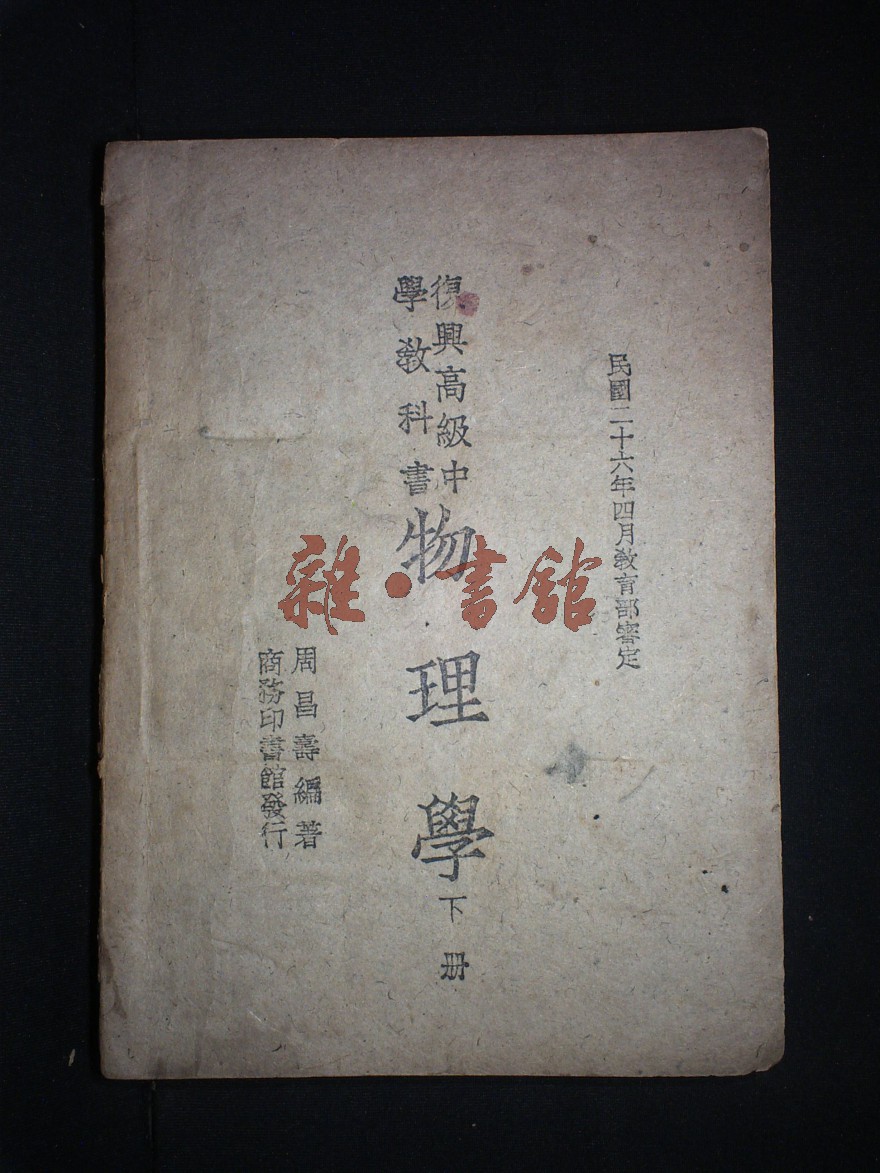 民國二十六年四月敎育部審定
復興高級中
學敎科書
物理學
下册
周昌壽編著
商務印書館發行
雜·書館